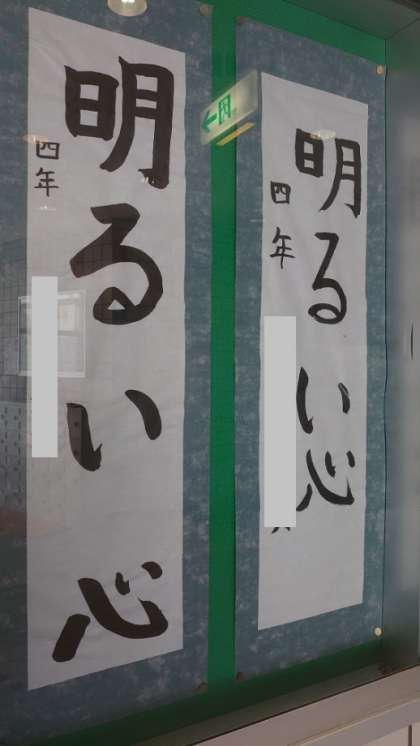 明るい心
四年
明るい心
四年